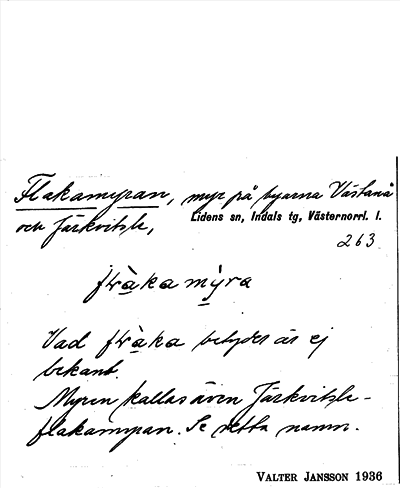 Flakamyran, myr på byarna Västanå
Lidens sn, Indals tg, Västernorrl. l.
och Järkvitsle,
263
fḷàka mỳra
Vad fḷàka betyder är ej
bekant.
Myren kallas även Järkvitsle-
flakamyran. Se detta namn.
VALTER JANSSON 1936